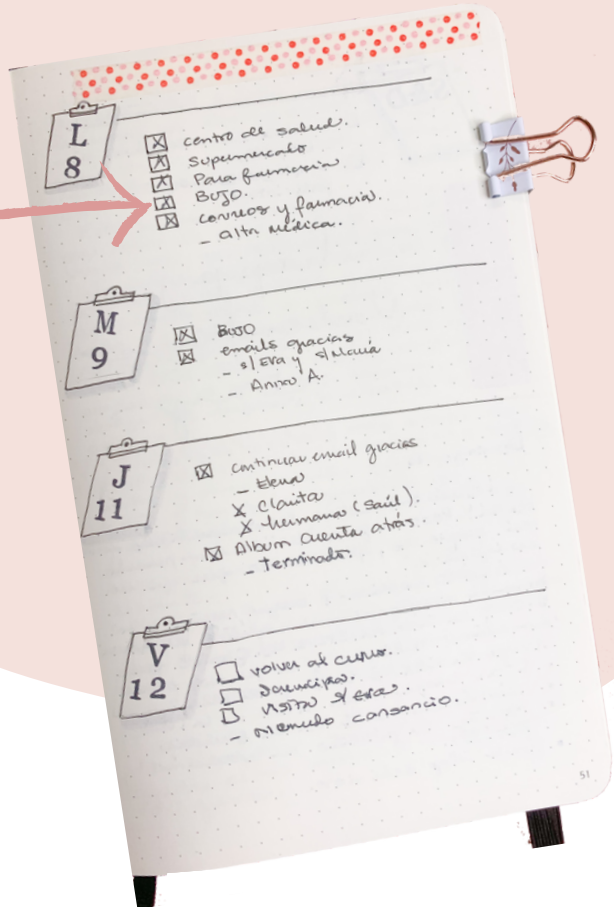 L
8
centro de salud.
Supermercado
Para farmacia
BUJO.
correos y farmacia.
- alta médica.
M
9
BUJO
emails gracias
- s/ Eva y s/ María
- Anxo A.
J
11
continuar email gracias
- Elena
x Clarita
x hermana (Saúl).
Album cuenta atrás.
- terminado.
V
12
volver al curso.
visita s/ Eva.
- menudo cansancio.
51